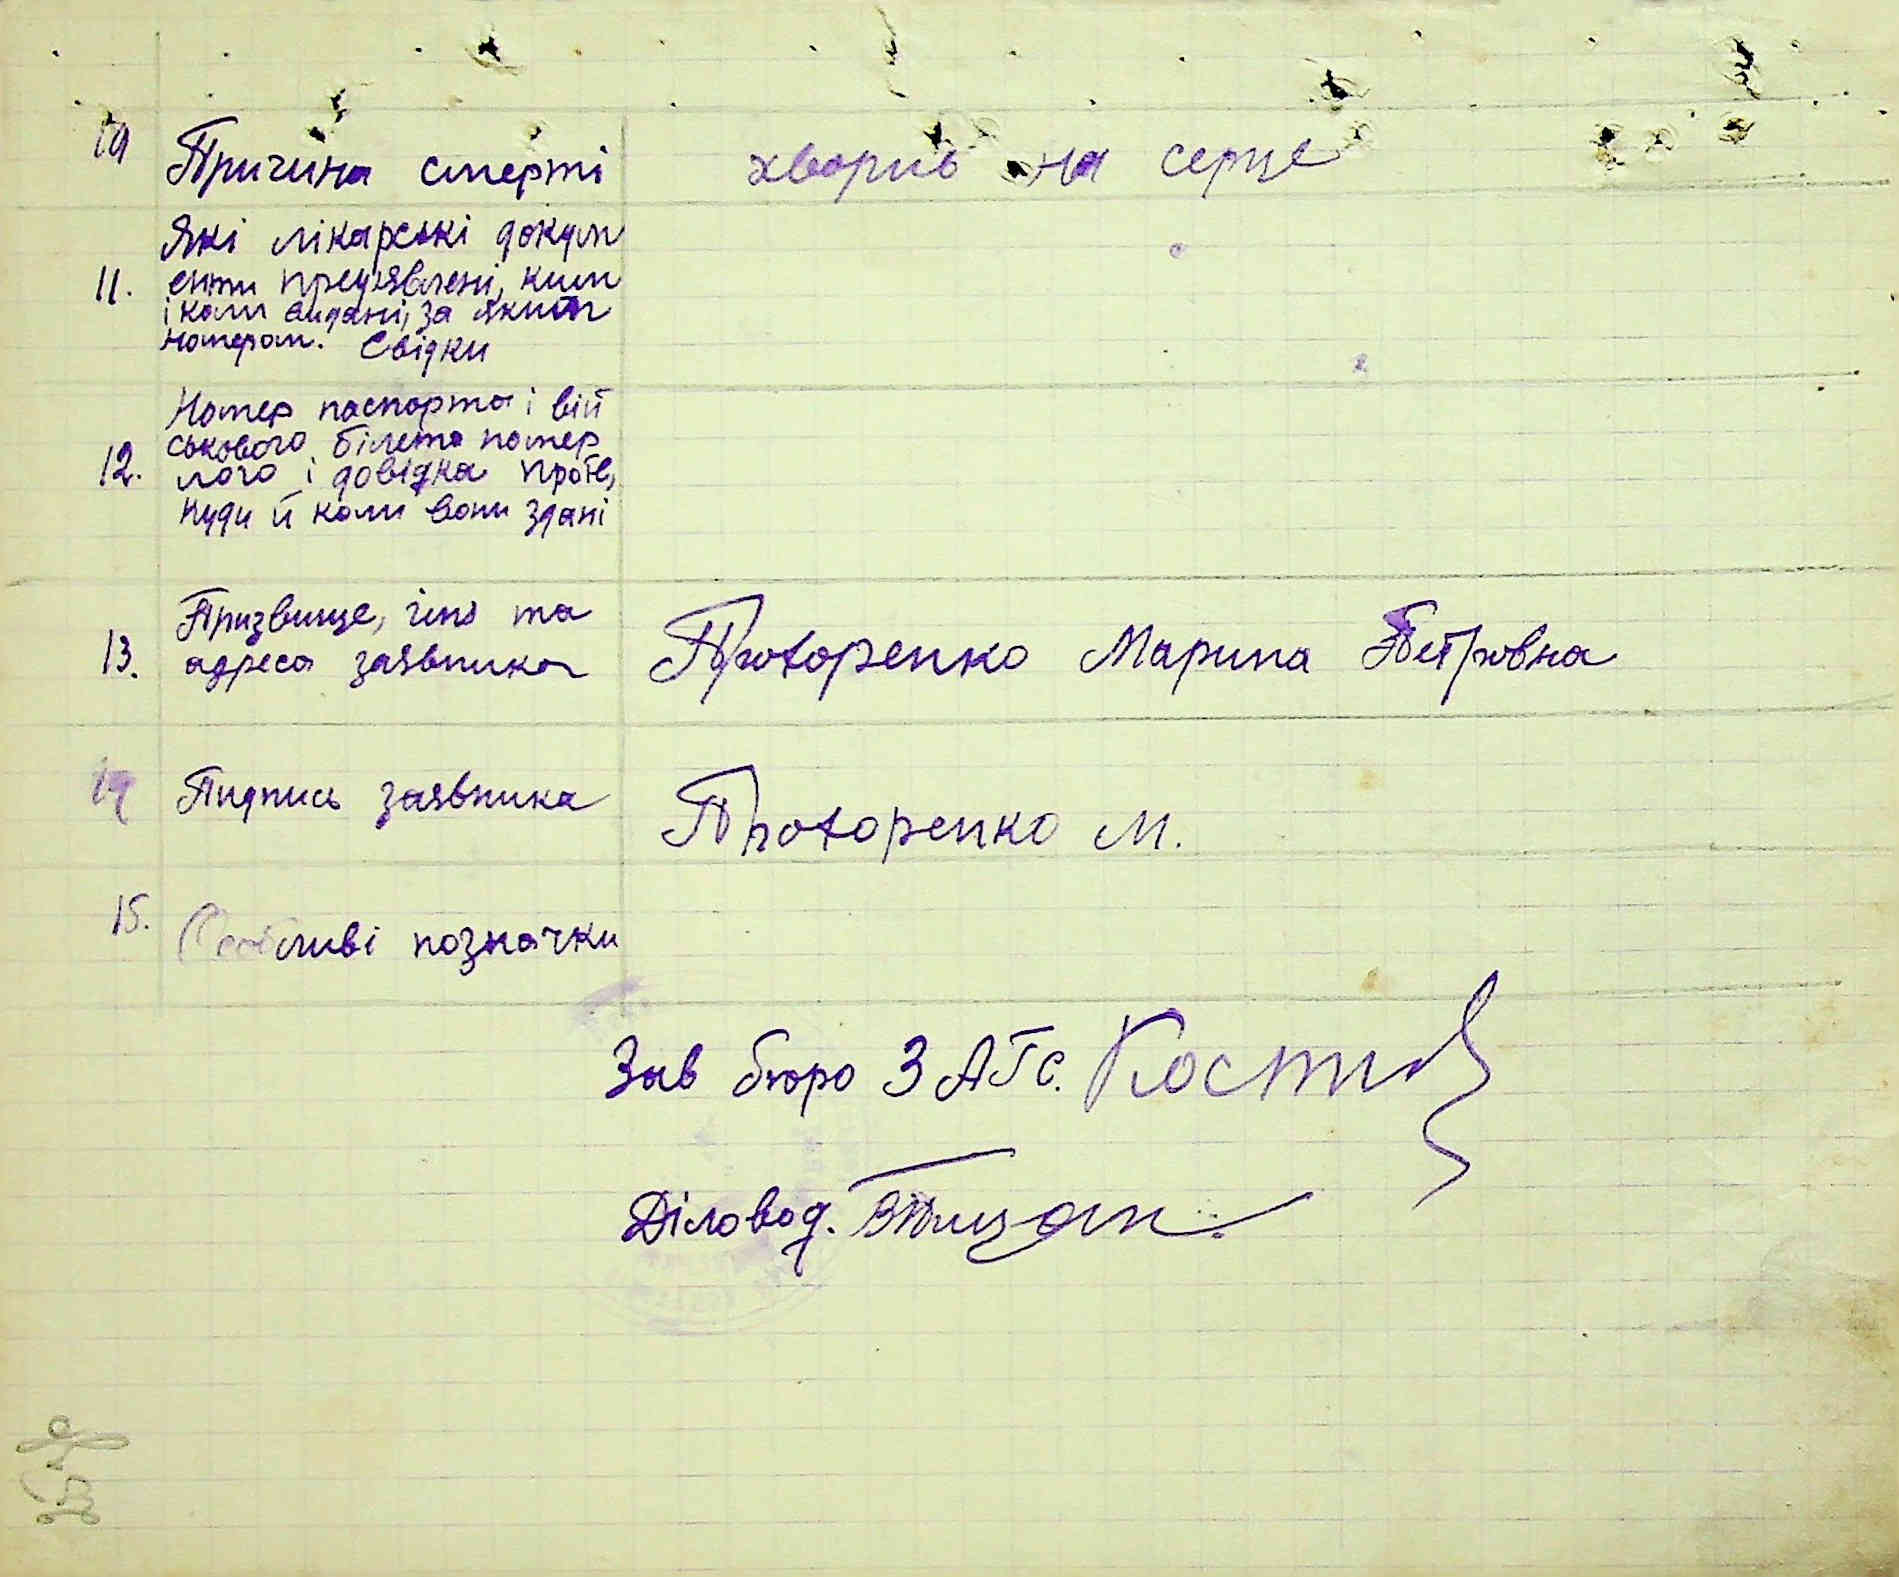 10 Причина смерті хворів на серце
Які лікарські докум
11. енти пред'явлені, ким
і коли видані, за яким
номером. Свідки
Номер паспорта і вій
ськового білета помер
12. лого і довідка про те,
куди й коли вони здані
Призвище, імя та
13. адреса заявника Прохоренко Марина Петровна
14 Пидпись заявника Прохоренко М.
15. Особливі позначки
Зав бюро ЗАГС. Кости
Діловод.